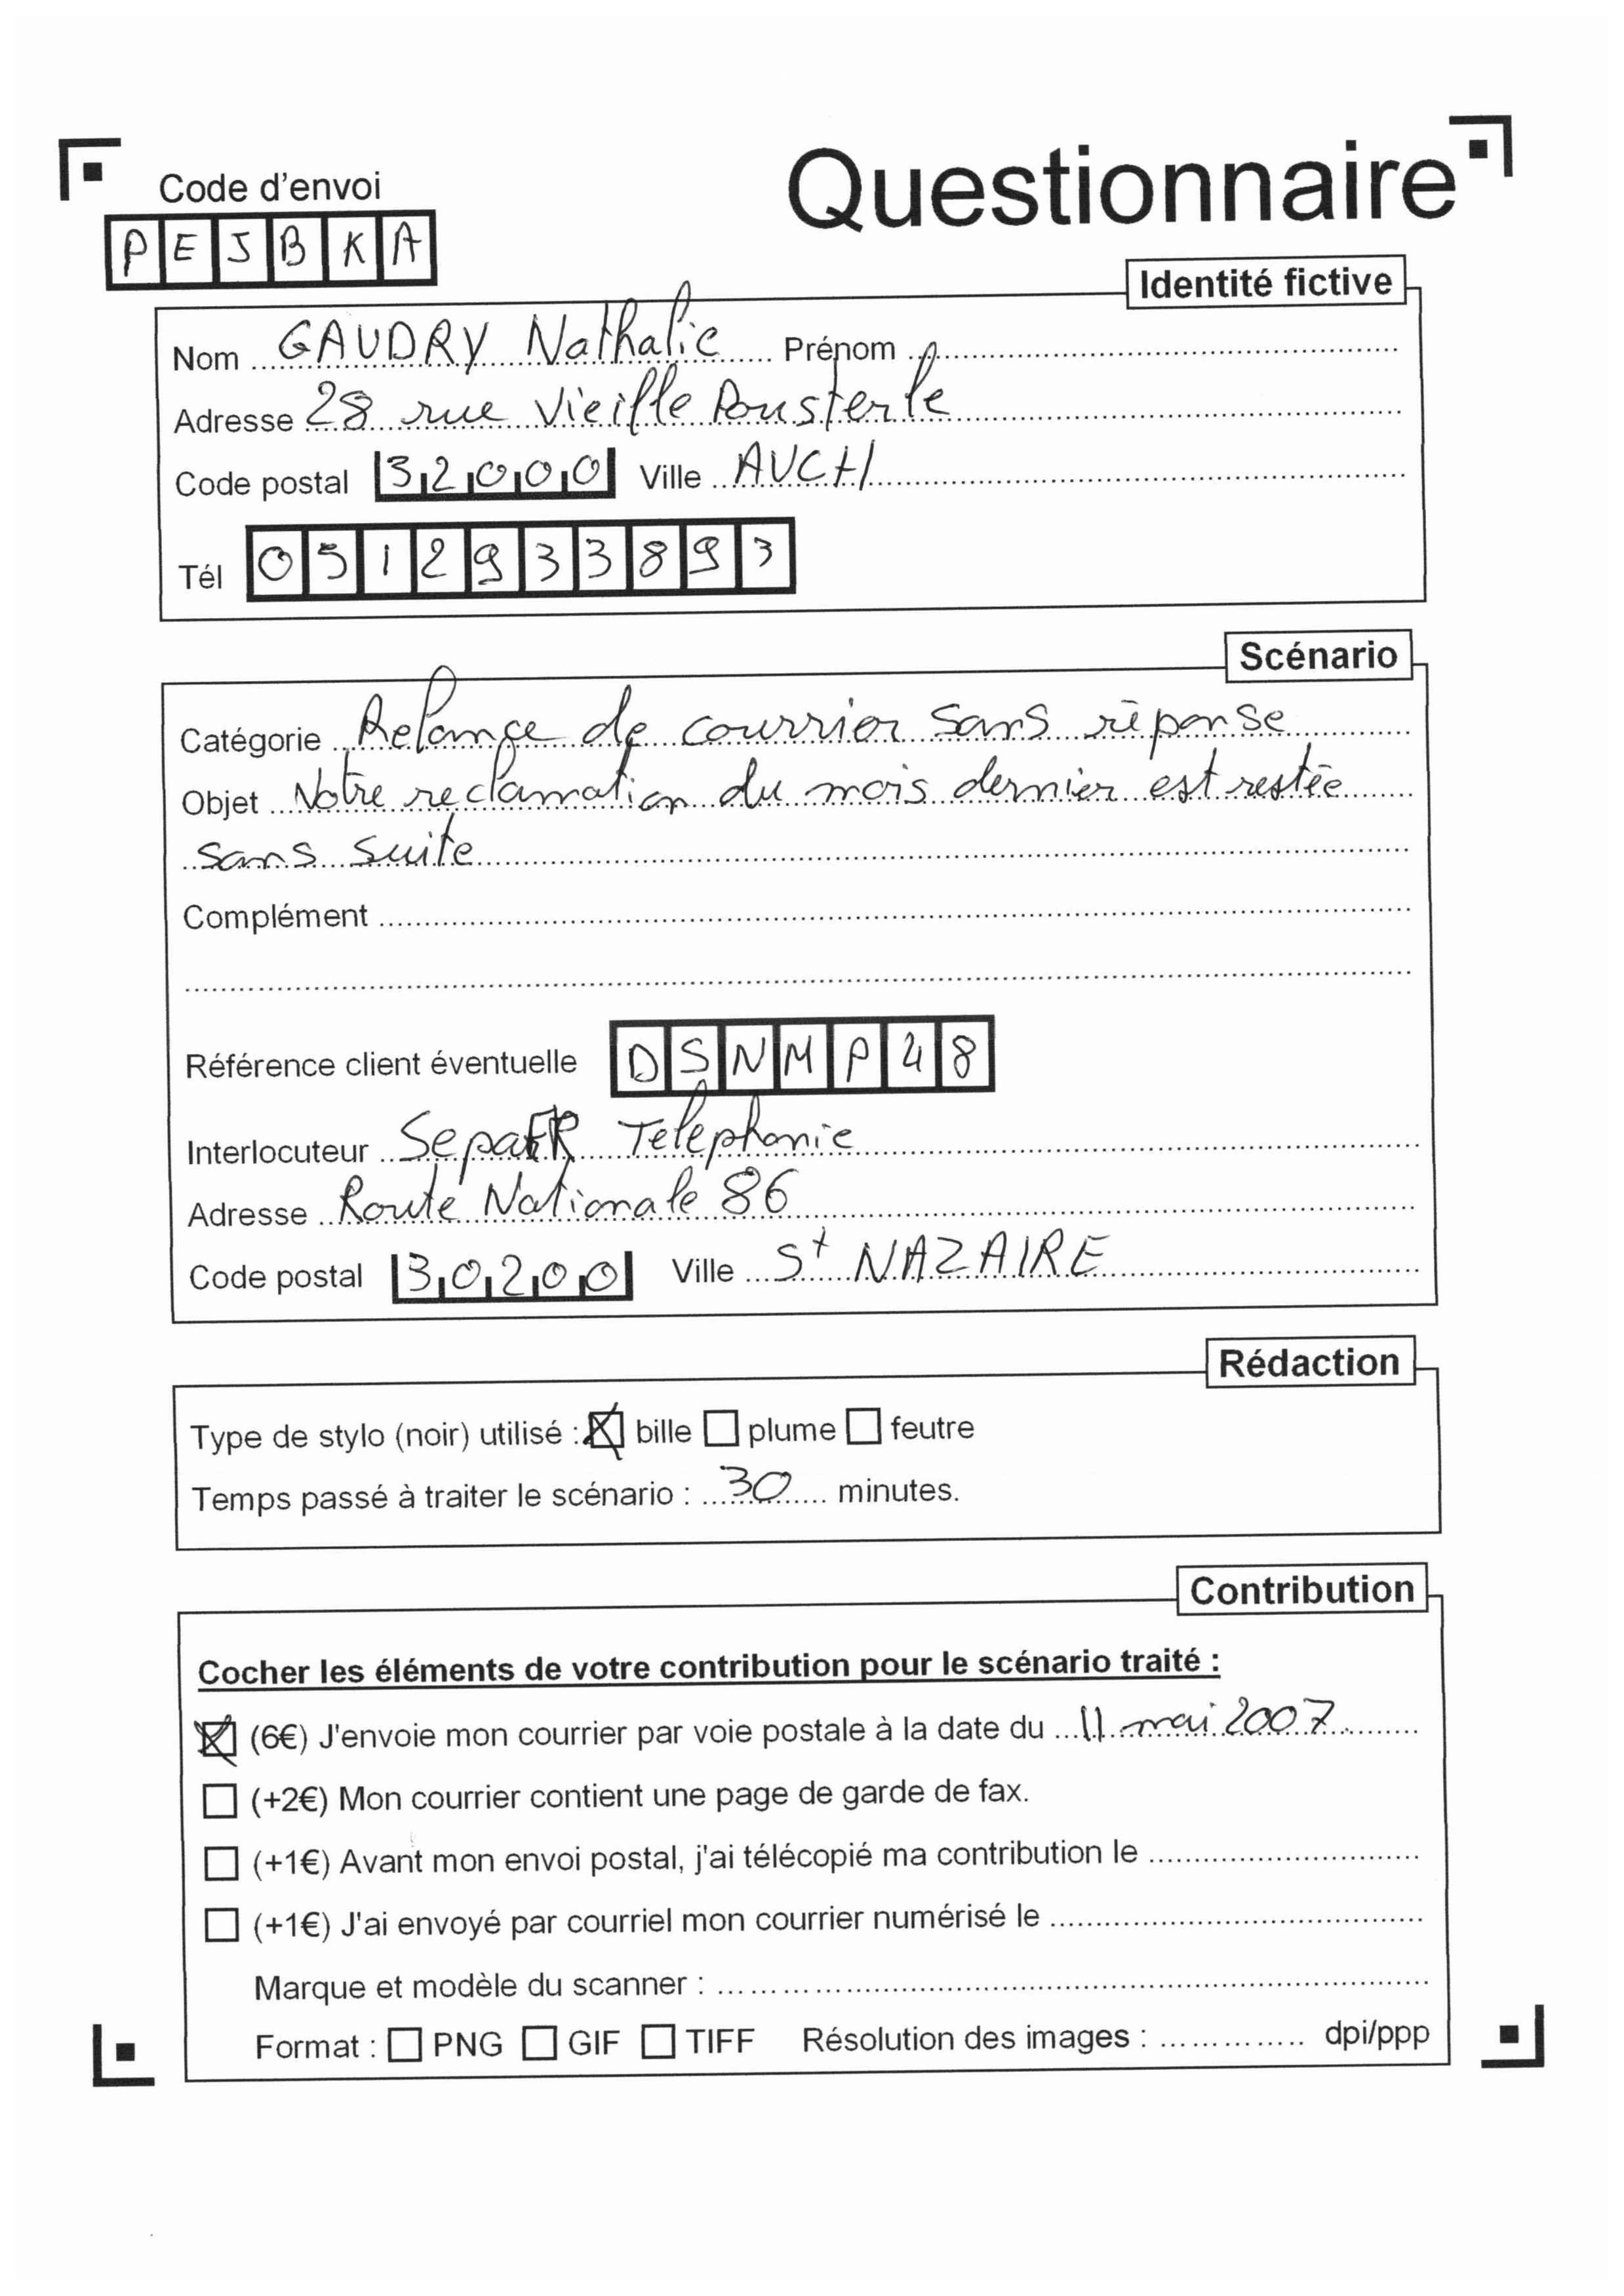 Questionnaire
Code d'envoi
PEJBKA
Identité fictive
Nom GAUDRY Nathalie Prénom
Adresse 28 rue Vieille Pousterle
Code postal 32000 Ville AUCH
Tél 0512933893
Scénario
Catégorie Relance de courrier sans réponse
Objet Notre reclamation du mois dernier est restée
sans suite
Complément
Référence client éventuelle DSNMP48
Interlocuteur SepaFR Telephonie
Adresse Route Nationale 86
Code postal 30200 Ville St NAZAIRE
Rédaction
Type de stylo (noir) utilisé : bille plume feutre
Temps passé à traiter le scénario : 30 minutes.
Contribution
Cocher les éléments de votre contribution pour le scénario traité :
(6€) J'envoie mon courrier par voie postale à la date du 11 mai 2007
(+2€) Mon courrier contient une page de garde de fax.
(+1€) Avant mon envoi postal, j'ai télécopié ma contribution le
(+1€) J'ai envoyé par courriel mon courrier numérisé le
Marque et modèle du scanner :
Format : PNG GIF TIFF Résolution des images : dpi/ppp